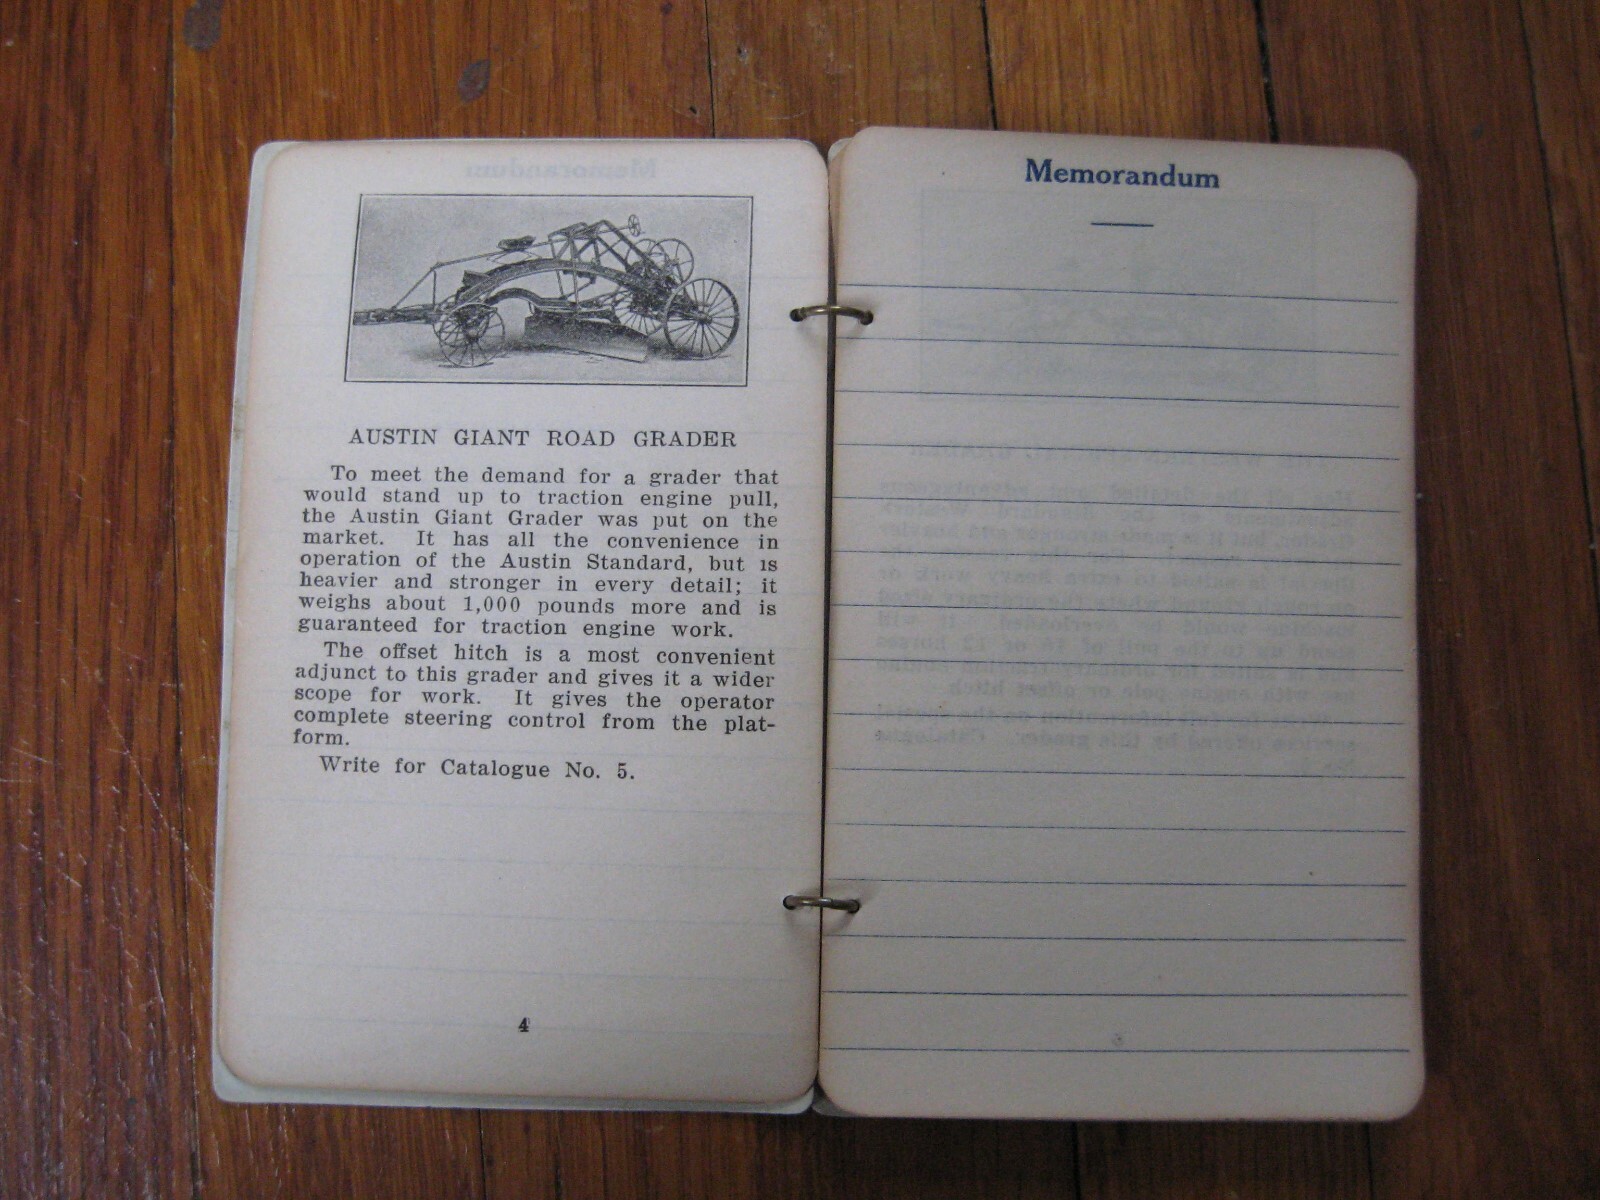 AUSTIN GIANT ROAD GRADER
To meet the demand for a grader that
would stand up to traction engine pull,
the Austin Giant Grader was put on the
market. It has all the convenience in
operation of the Austin Standard, but is
heavier and stronger in every detail; it
weighs about 1,000 pounds more and is
guaranteed for traction engine work.
The offset hitch is a most convenient
adjunct to this grader and gives it a wider
scope for work. It gives the operator
complete steering control from the plat-
form.
Write for Catalogue No. 5.
4
Memorandum